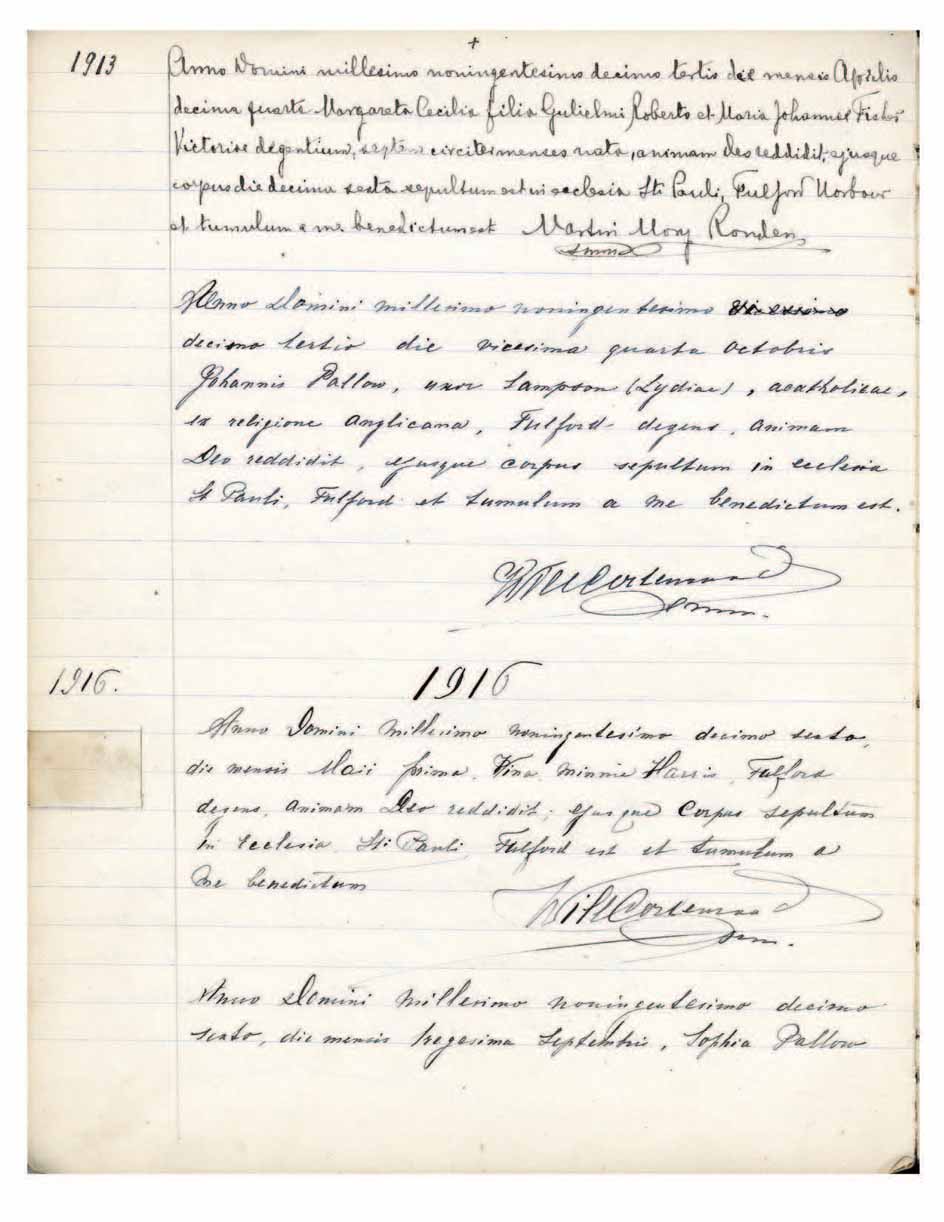 +
1913 Anno Domini millesimo noningentesimo decimo tertio die mensis Aprilis
decima quarta Margareta Cecilia filia Gulielmi Roberto et Maria Johannae Fisher
Victoriae degentium, septem circiter menses nata, animam Deo reddidit, ejusque
corpus die decima sexta sepultum est in ecclesia Sti Pauli, Fulford Harbour
et tumulum a me benedictum est Martin Mary Ronden
smm
Anno Domini millesimo noningentesimo
decimo tertio die vicesima quarta octobris
Johannis Pallow, uxor Sampson (Lydiae), acatholicae,
ex religione Anglicana, Fulford degens, animam
Deo reddidit, ejusque corpus sepultum in ecclesia
St Pauli, Fulford et tumulum a me benedictum est.
Will Cortenraad
smm.
1916. 1916
Anno Domini Millesimo noningentesimo decimo sexto,
die mensis Maii prima, Vina Minnie Harris, Fulford
degens, animam Deo reddidit; ejusque Corpus sepultum
in Ecclesia Sti Pauli Fulford est et tumulum a
me benedictum
Will Cortenraad
smm.
Anno Domini Millesimo noningentesimo decimo
sexto, die mensis Septembris, Sophia Pallow